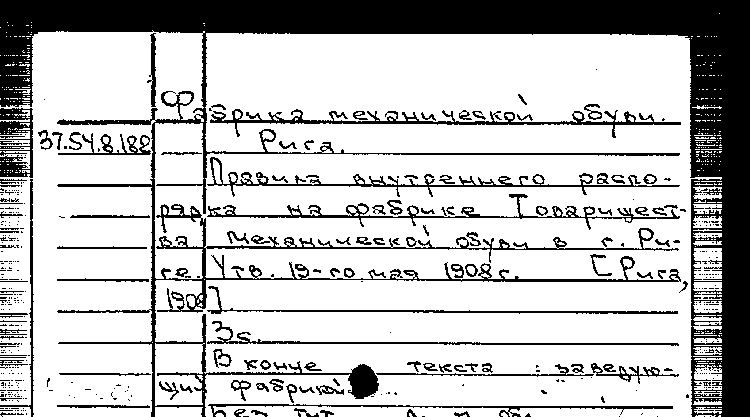 Фабрика механической обуви.
37.54.8.182 Рига.
Правила внутреннего распо-
рядка на фабрике Товарищест-
ва механической обуви в г. Ри-
ге. Утв. 19-го мая 1908 г. [Рига,
1908]
3с.
В конце текста: заведую-
щий фабрикой
Без тит.